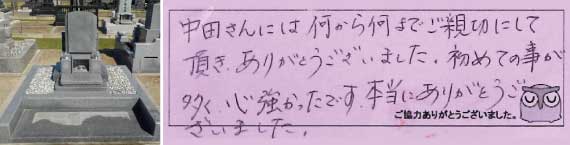 中田さんには何から何までご親切にして
頂き、ありがとうございました。初めての事が
多く、心強かったです。本当にありがとうご
ざいました。
ご協力ありがとうございました。